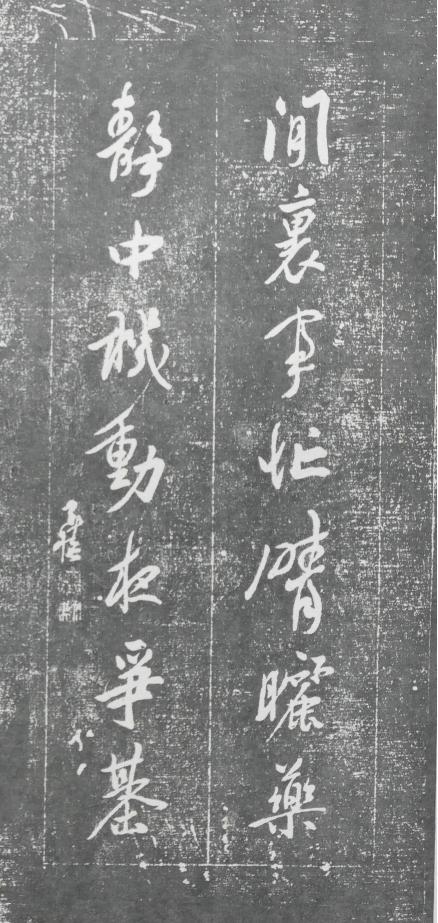 閒裏事忙晴曬藥
靜中機動夜爭碁